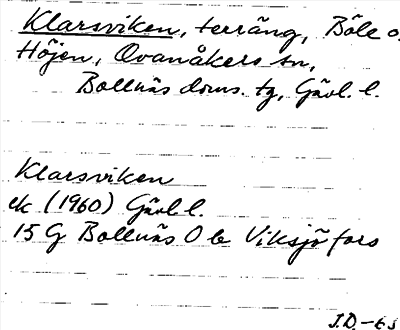 Klarsviken, terräng, Böle o.
Höjen, Ovanåkers sn,
Bollnäs doms. tg, Gävl. l.
Klarsviken
ek (1960) Gävl. l.
15 G Bollnäs O b Viksjöfors
J.D.-63